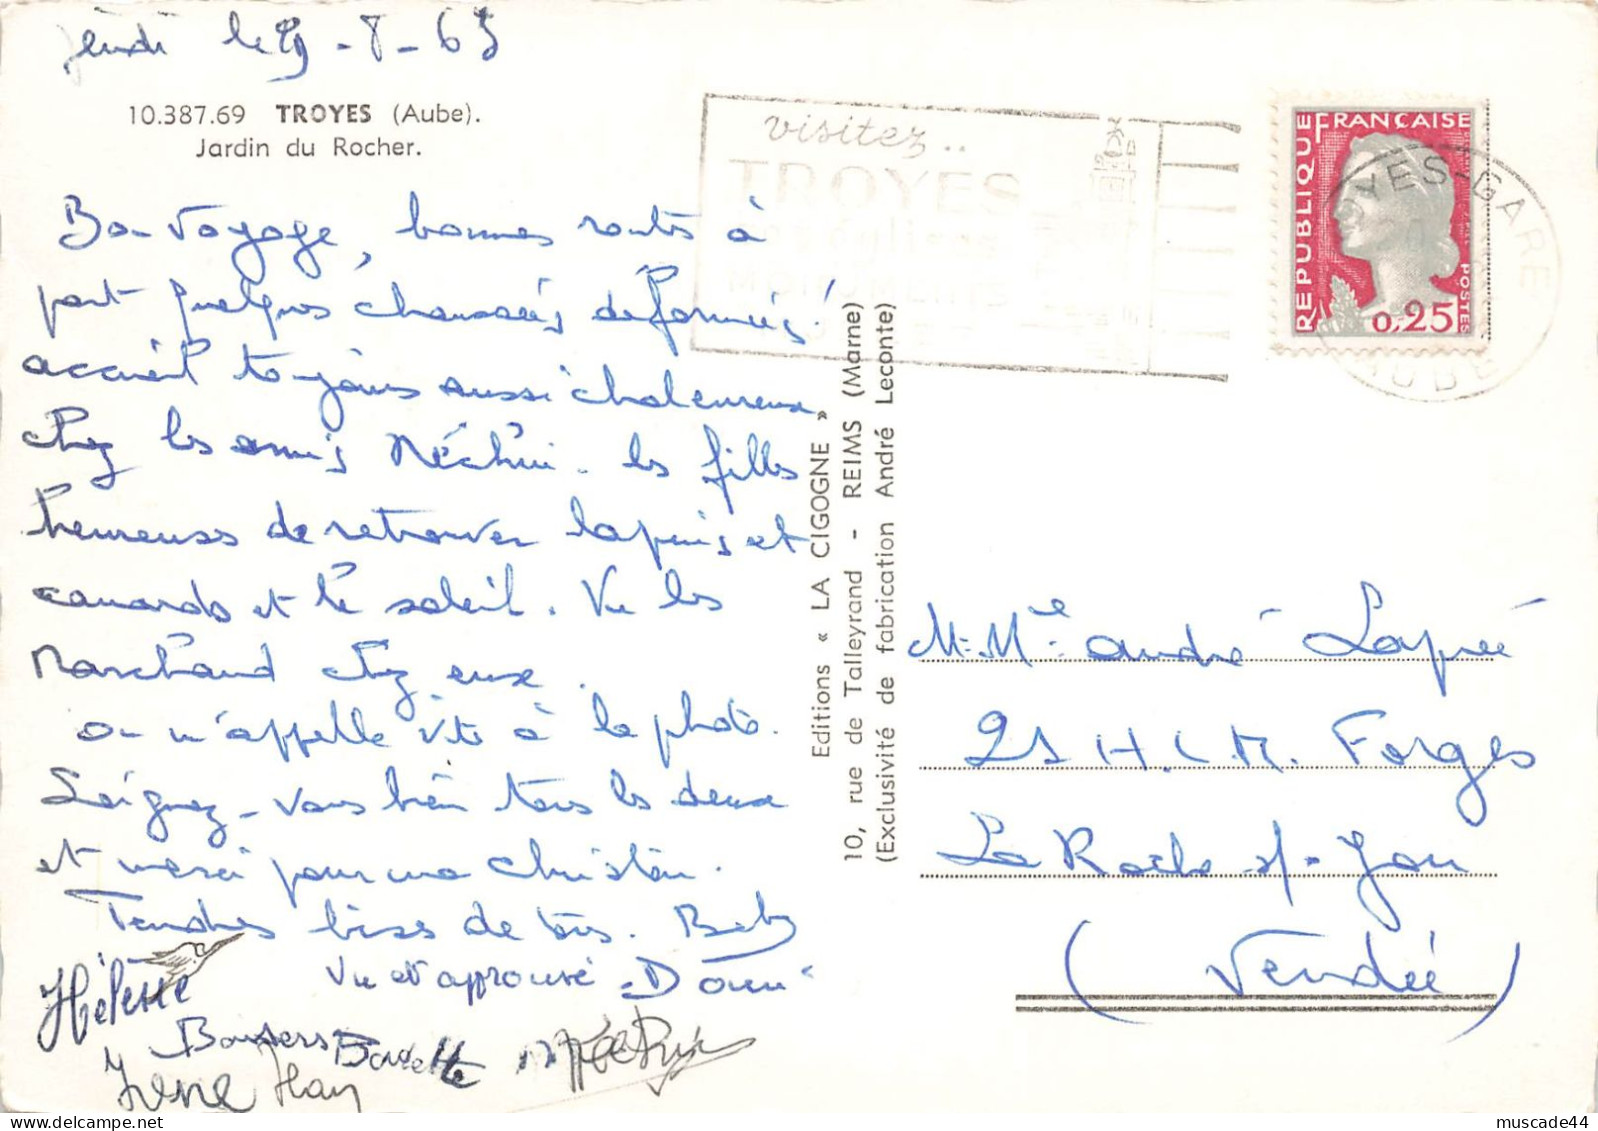 Jeudi le 19-8-65
10.387.69 TROYES (Aube).
Jardin du Rocher.
Bon voyage, bonnes routes à
part quelques chaussées déformées!
accueil toujours aussi chaleureux
chez les amis Néchin. les filles
heureuses de retrouver lapins et
canards et le soleil. Vu les
Marchand chez eux.
On m'appelle vite à la photo.
Soignez-vous bien tous les deux
et merci pour ma Christine.
Tendres bises de tous. Beb
Vu et approuvé
Hélène
Bonsers
Irène
visitez..
TROYES
MONUMENTS
REPUBLIQUE FRANÇAISE
POSTES
0,25
TROYES-GARE
AUBE
Editions « LA CIGOGNE »
10, rue de Talleyrand - REIMS (Marne)
(Exclusivité de fabrication André Leconte)
M. Me André Lapié
21 H.L.M. Forges
La Roche s/-Yon
(Vendée)
muscade44